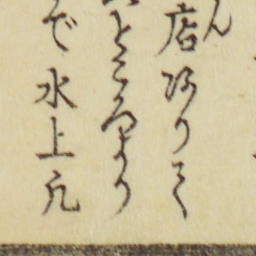 ん
店ありて
ところより
で水上凡